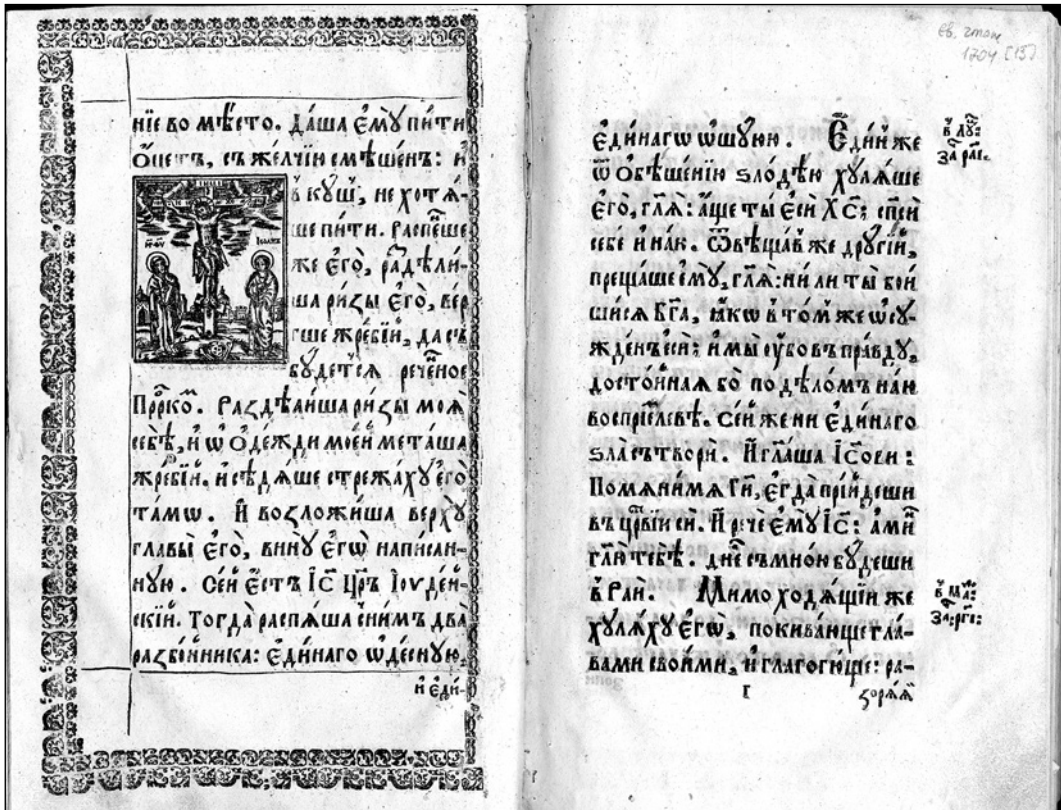 нїе во мѣсто. Да́ша є҆мꙋ̀ пи́ти
Ѻ҆́цетъ, съ же́лчїю смѣ́шенъ: и҆
в̾кꙋ́шь, не хотѧ́-
ше пи́ти. Распе́нше
же є҆го̀, раздѣли́-
ша ри́зы є҆го̀, ве́р
гше жре́бїй, да съ
бꙋ́детсѧ рече́ное
Прⷪ҇рко. Раздѣли́ша ри́зы моѧ̀
себѣ̀, и҆ ѡ҆ ѻ҆де́жди мое́й мета́ша
жре́бїй. и҆ сѣдѧ́ше стрежа́хꙋ є҆го̀
та́мѡ. И҆ возложи́ша верхꙋ̀
главы̀ є҆го̀, винꙋ̀ є҆гѡ̀ написан-
нꙋю. Се́й є҆́стъ І҆с҃ Цр҃ь І҆ѹде́й-
скїй. Тогда̀ распѧ́ша с̾ни́мъ два̀
разбо́йника: є҆ди́наго ѡ҆деснꙋ́ю,
и҆ є҆ди-
є҆ди́наго ѡ҆шꙋ́юю. Є҆ди́н же
ѿ ѻ҆бѣ́шенїю ѕлодѣ́ю хꙋлѧ́ше
є҆го̀, гл҃ѧ: а҆́ще ты̀ є҆сѝ Хс҃; сп҃си
себѐ и҆ на́ю. Ѿвѣща́в же дрꙋгі́й,
преща́ше є҆мꙋ̀, гл҃ѧ: ни́ ли ты̀ бои́
шисѧ Бг҃а, ꙗ҆́кѡ в̾то́м же ѡ҆сꙋ-
жде́нъ є҆сѝ; и҆ мы̀ ѹ҆́бо въ пра́вдꙋ,
досто́йнаѧ бо̀ по дѣло́мъ на́ю
воспрїе́левѣ. Се́й же ни є҆ди́наго
ѕла̀ сътворѝ. И҆ гл҃аша І҆с҃ови:
Помѧни́ мѧ Гн҃, є҆гда̀ прїи́деши
въ црⷭ҇вїи си́. И҆ речѐ є҆мꙋ̀ І҆с҃: а҆ми́нь
гл҃ю тебѣ̀. дне́сь съ мно́ю бꙋ́деши
в̾ Раѝ. Мимо ходѧ́щїи же
хꙋлѧ́хꙋ є҆гѡ̀, покива́юще гла-
ва́ми свои́ми, и҆ глаго́юще: ра-
зорѧ́ѧ